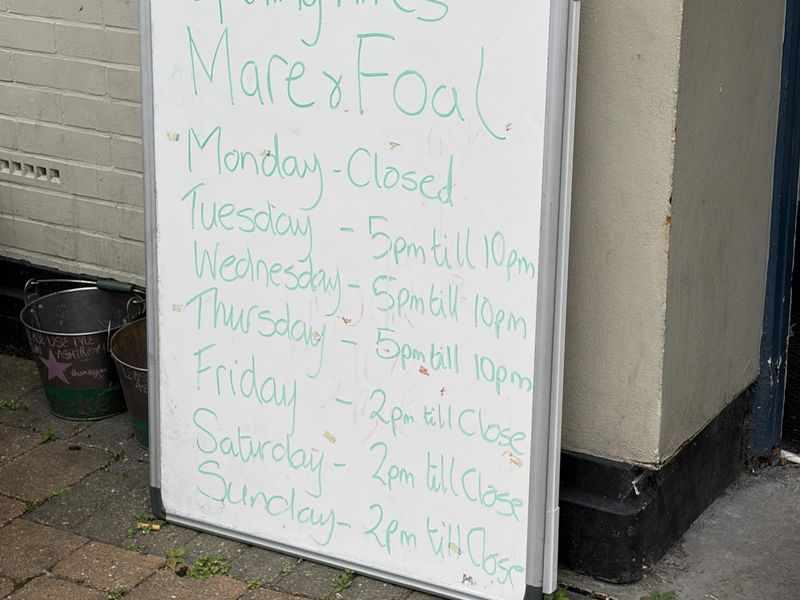 Opening Times
Mare & Foal
Monday - Closed
Tuesday - 5pm till 10pm
Wednesday - 5pm till 10pm
Thursday - 5pm till 10pm
Friday - 2pm till Close
Saturday - 2pm till Close
Sunday - 2pm till Close
USE
ASHTRAY
thankyou